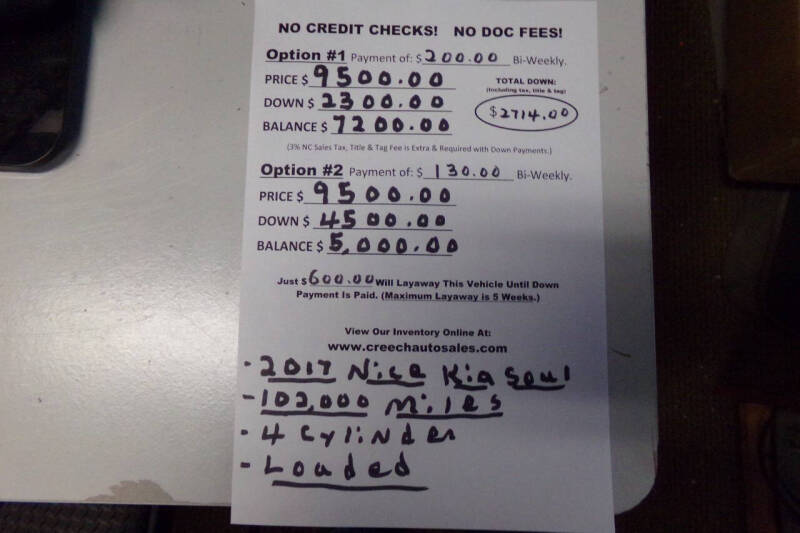 NO CREDIT CHECKS! NO DOC FEES!
Option #1 Payment of: $ 200.00 Bi-Weekly.
PRICE $ 9500.00
DOWN $ 2300.00
BALANCE $ 7200.00
TOTAL DOWN:
(Including tax, title & tag)
$2714.00
(3% NC Sales Tax, Title & Tag Fee is Extra & Required with Down Payments.)
Option #2 Payment of: $ 130.00 Bi-Weekly.
PRICE $ 9500.00
DOWN $ 4500.00
BALANCE $ 5,000.00
Just $600.00 Will Layaway This Vehicle Until Down
Payment Is Paid. (Maximum Layaway is 5 Weeks.)
View Our Inventory Online At:
www.creechautosales.com
- 2017 Nice Kia Soul
- 102,000 Miles
- 4 Cylinder
- Loaded